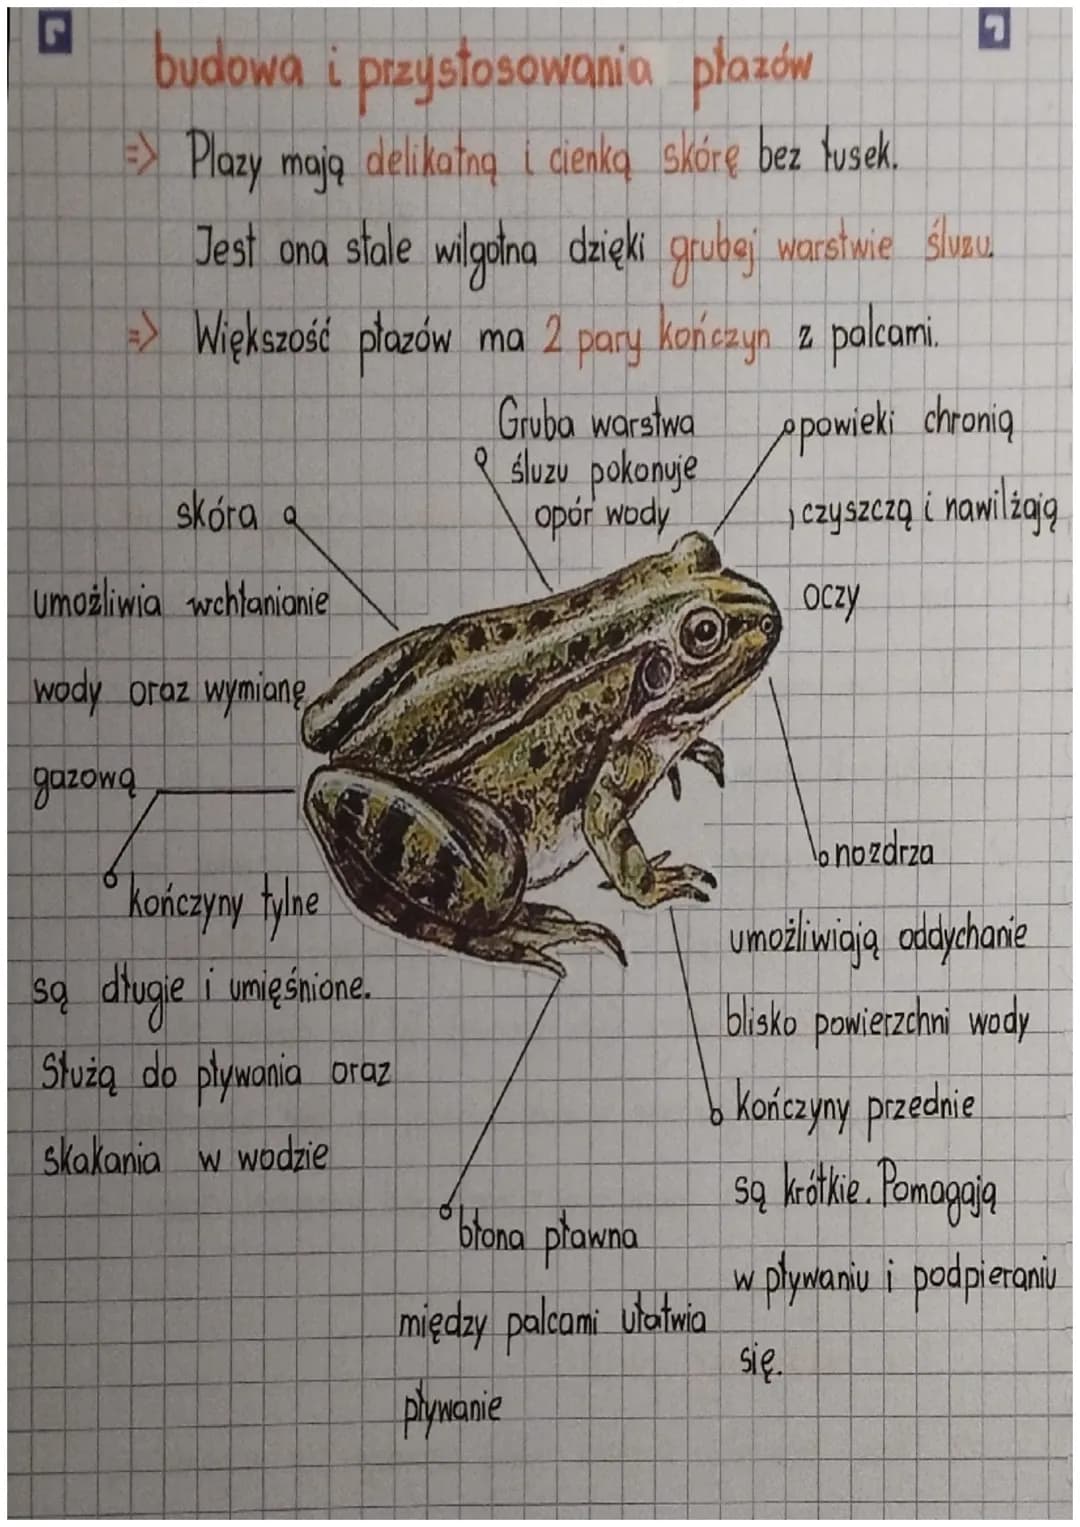 budowa i przystosowania płazów
=> Plazy mają delikatną i cienką skórę bez łusek.
Jest ona stale wilgotna dzięki grubej warstwie śluzu.
=> Większość płazów ma 2 pary kończyn z palcami.
Gruba warstwa
śluzu pokonuje
opór wody
powieki chronią
, czyszczą i nawilżają
oczy
skóra
umożliwia wchłanianie
wody oraz wymianę
gazową
kończyny tylne
są długie i umięśnione.
Służą do pływania oraz
skakania w wodzie
nozdrza
umożliwiają oddychanie
blisko powierzchni wody
kończyny przednie
są krótkie. Pomagają
w pływaniu i podpieraniu
się.
błona pławna
między palcami ułatwia
pływanie